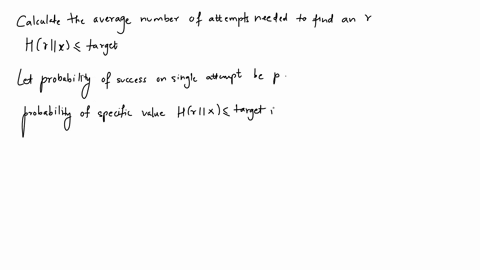 Calculate the average number of attempts needed to find an r
H(r||x) ⩽ target
Let probability of success on single attempt be p.
probability of specific value H(r||x) ⩽ target i